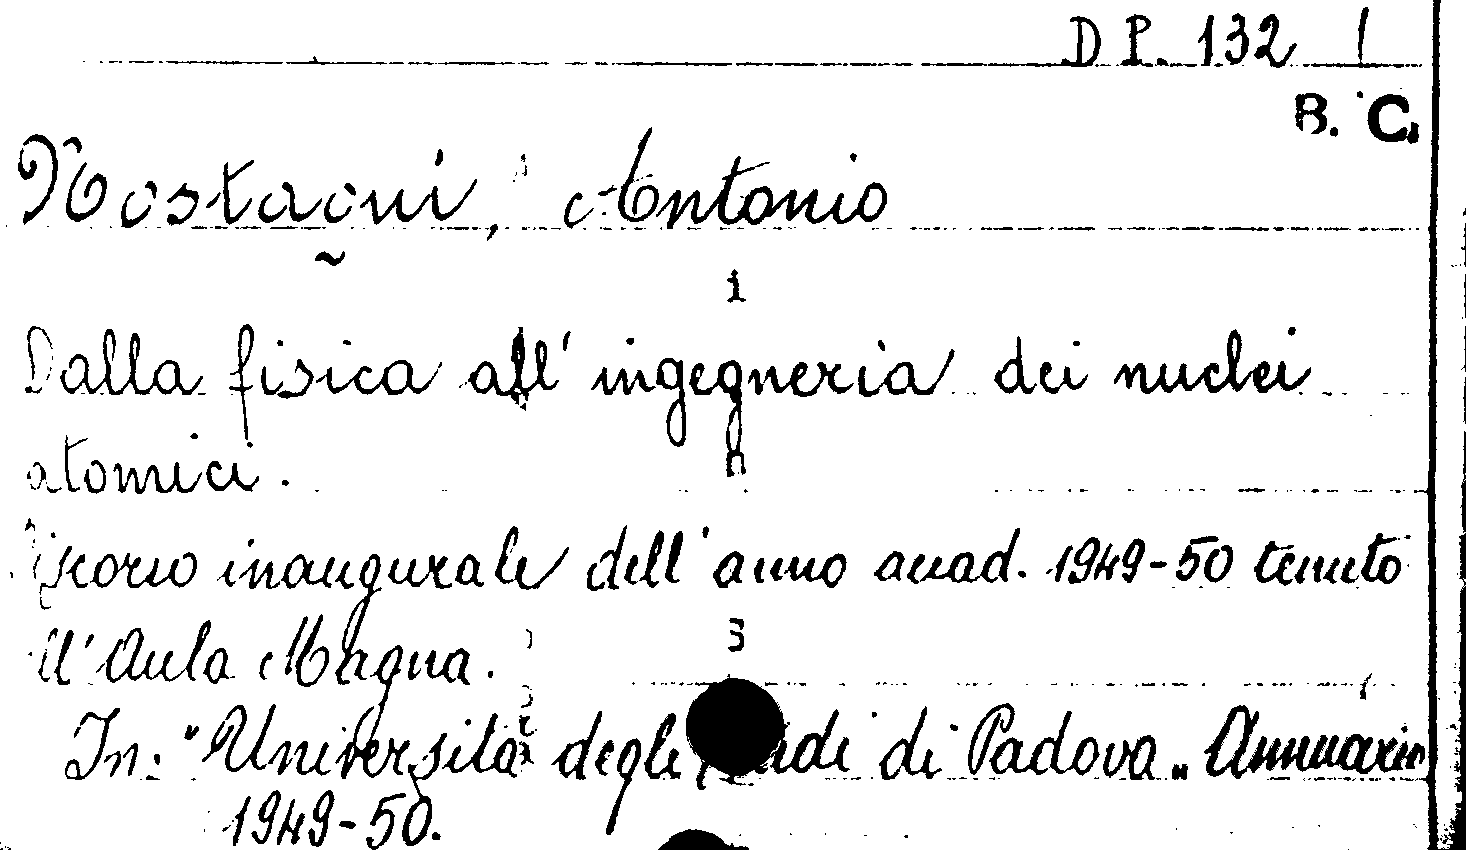 D P. 132 /
B. C.
Rostagni, Antonio
Dalla fisica all'ingegneria dei nuclei
atomici.
iscorso inaugurale dell'anno accad. 1949-50 tenuto
ll'Aula Magna.
In: "Università degli Studi di Padova" Annuario
1949-50.